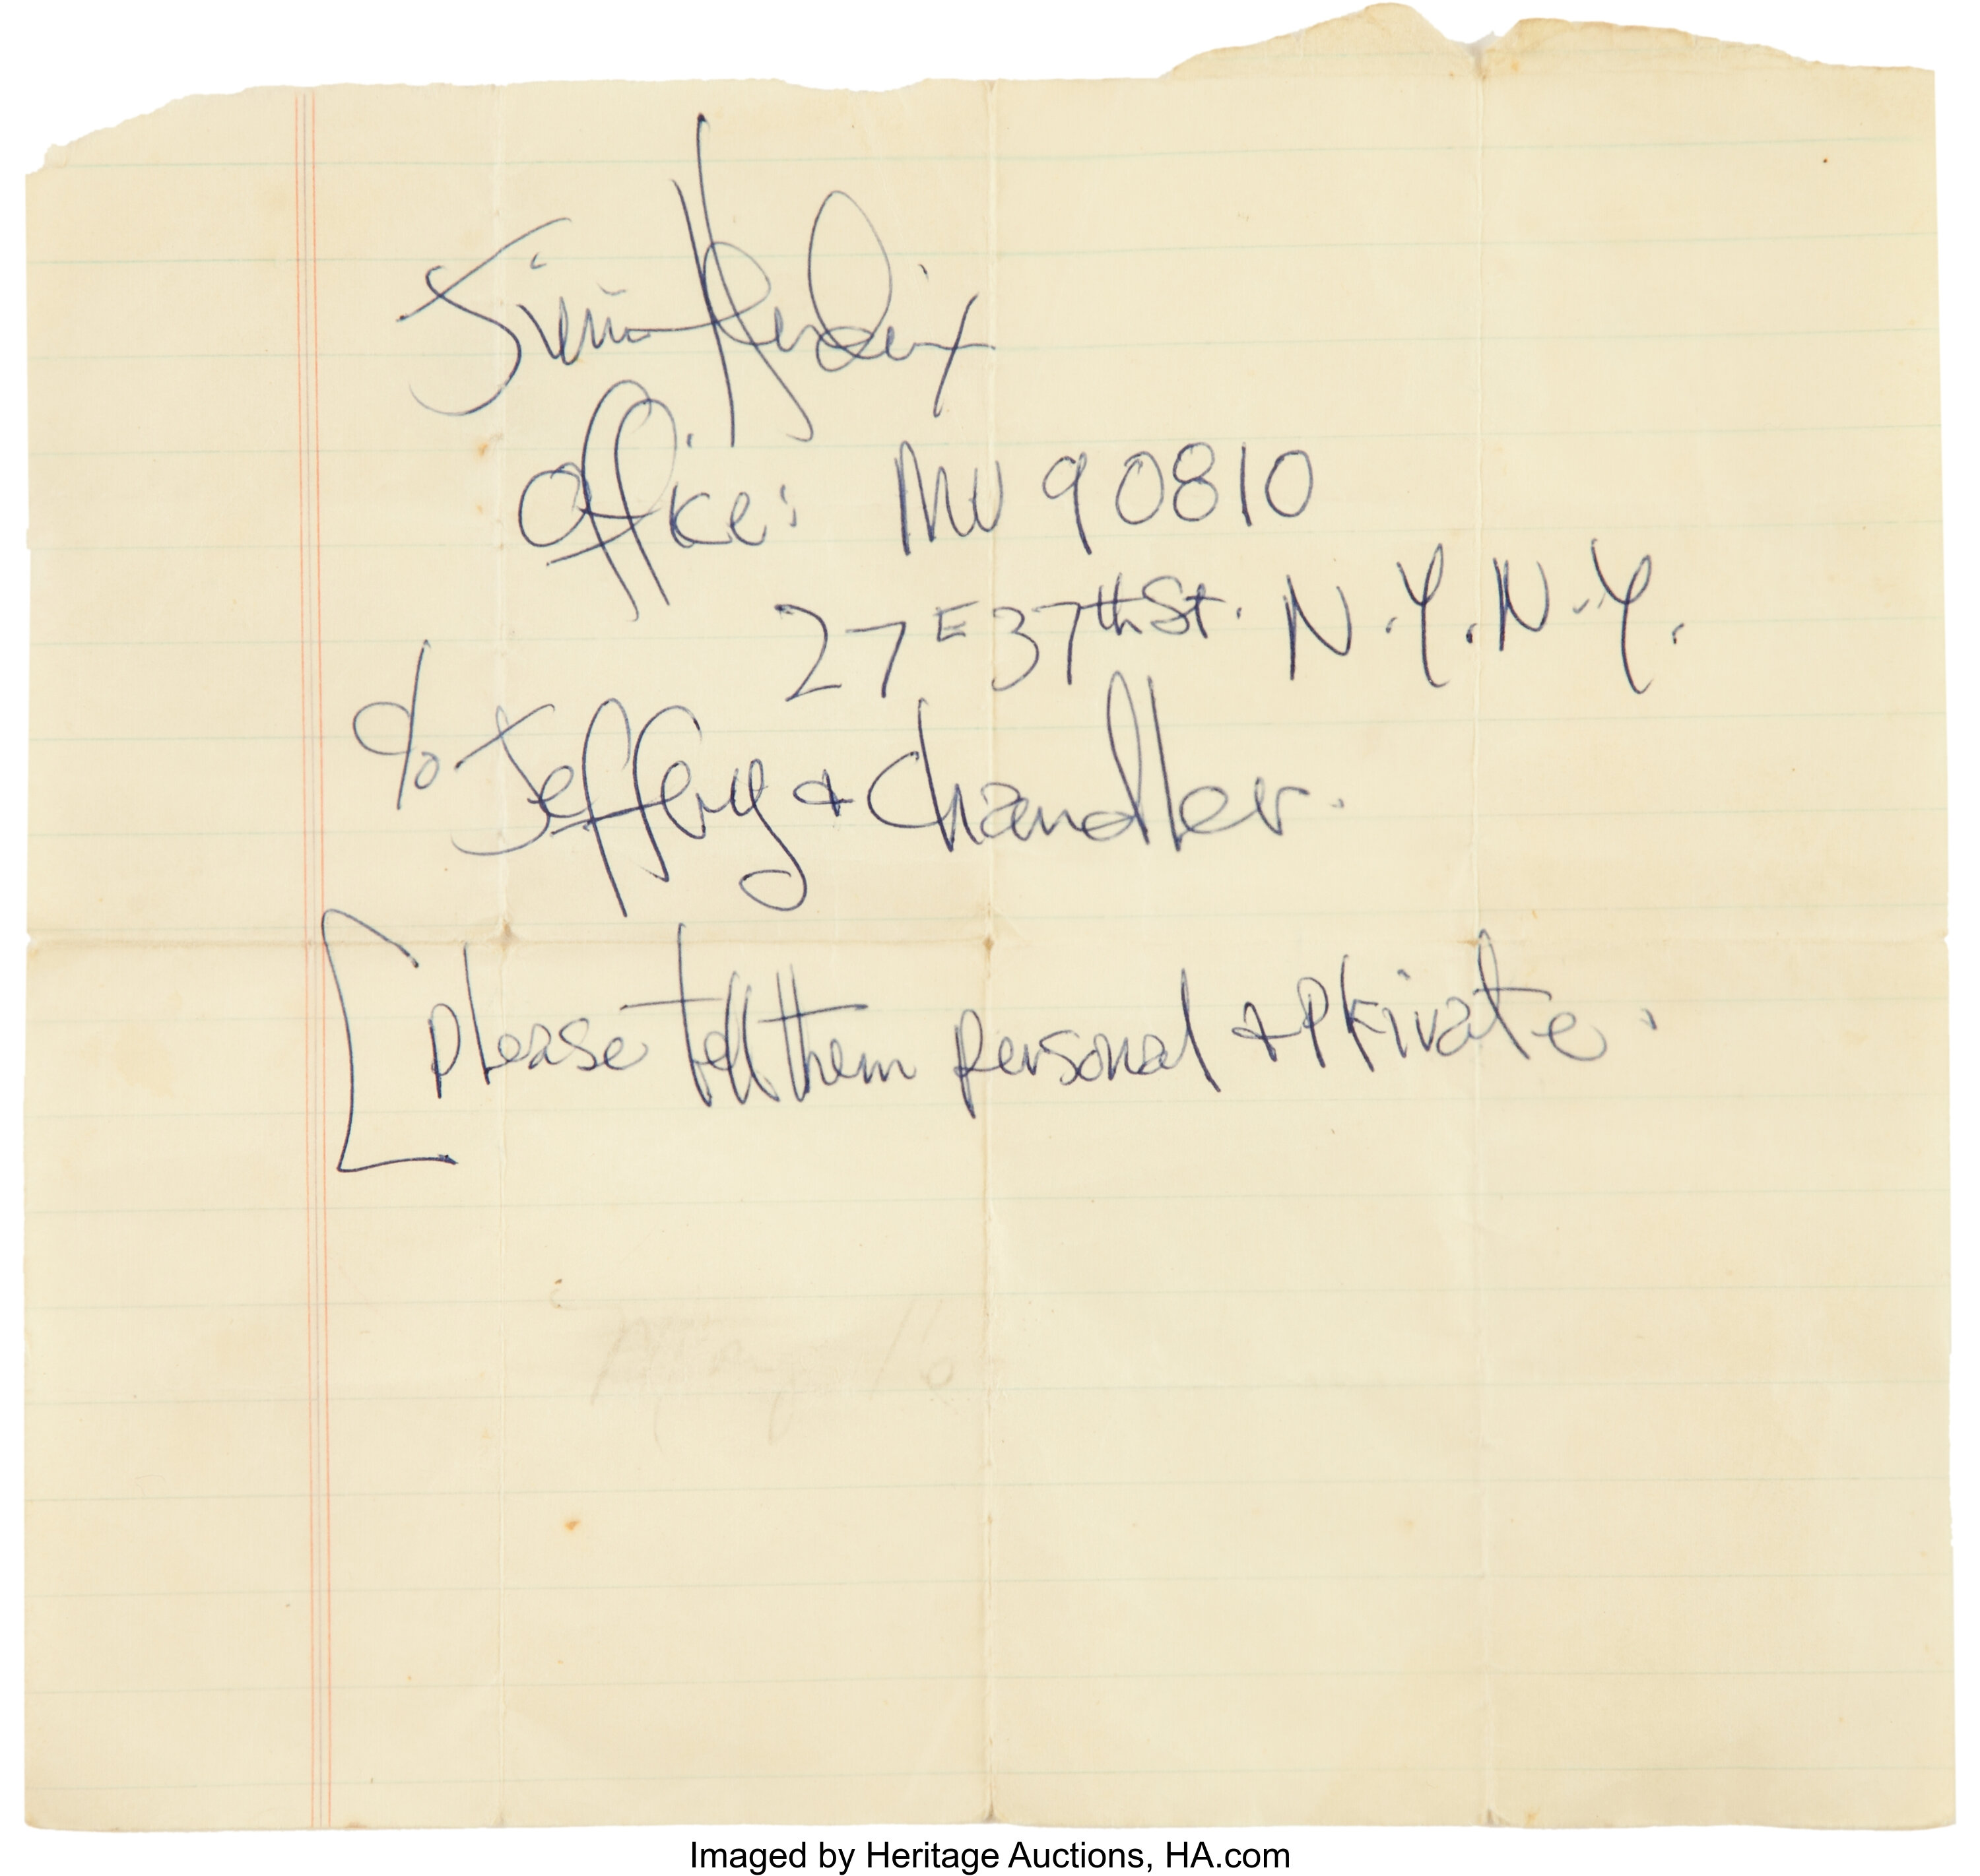 Jimi Hendrix
Office: MU 9 0810
27 E 37th St. N.Y. N.Y.
c/o Jeffery & Chandler.
[please tell them personal & private.
Imaged by Heritage Auctions, HA.com